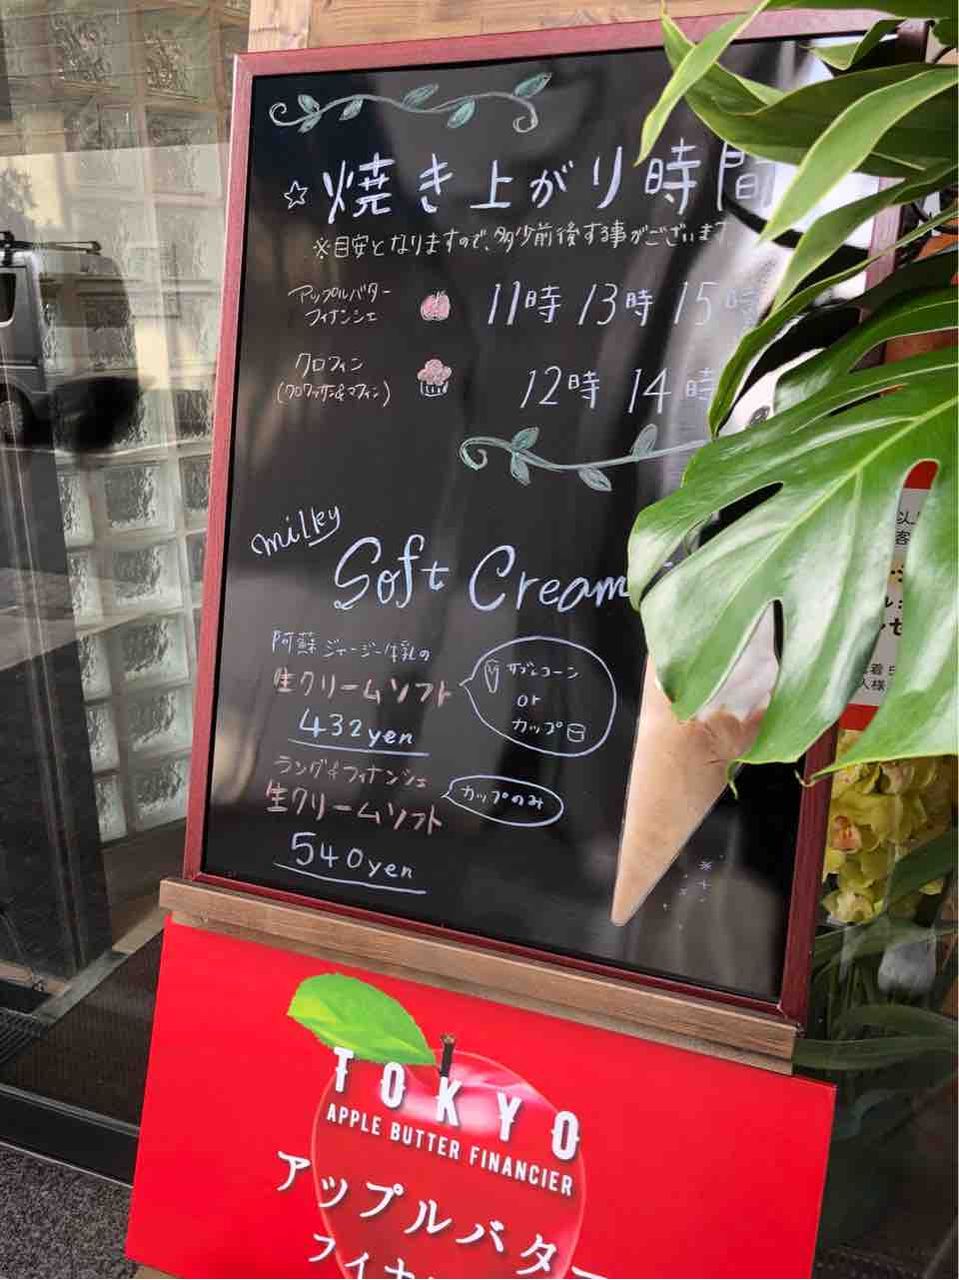 ☆焼き上がり時間
※目安となりますので、多少前後する事がございます
アップルバター
フィナンシェ
11時 13時 15時
クロフィン
(クロワッサン&マフィン)
12時 14時
milky
Soft Cream
阿蘇ジャージー牛乳の
生クリームソフト
432yen
サブレコーン
or
カップ
ラング&フィナンシェ
生クリームソフト
540yen
カップのみ
TOKYO
APPLE BUTTER FINANCIER
アップルバター
フィナ